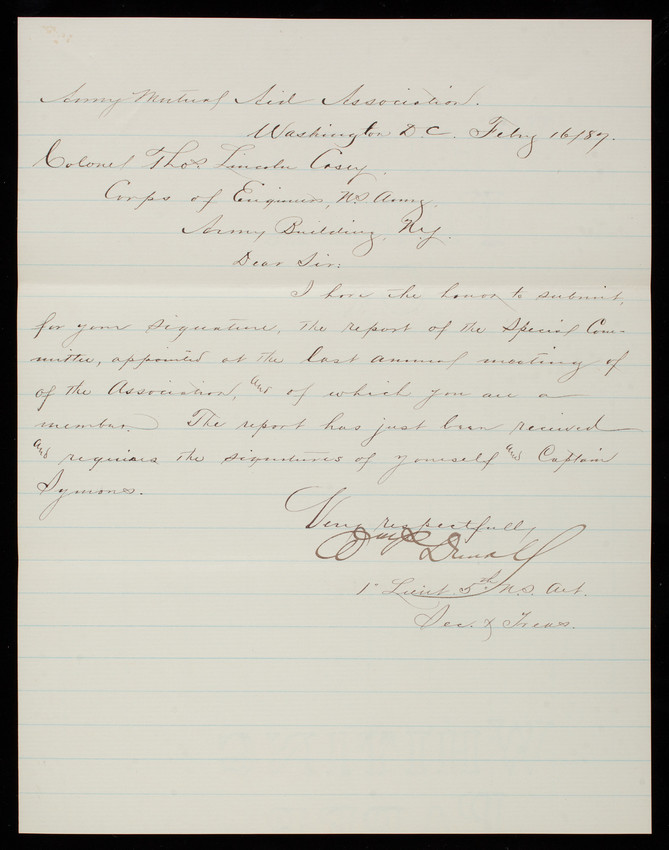 Army Mutual Aid Association.
Washington D.C. Feby 16/87.
Colonel Thos. Lincoln Casey.
Corps of Engineers, U.S. Army.
Army Building, N.Y.
Dear Sir:
I have the honor to submit,
for your signature, the report of the Special Com-
mittee, appointed at the last annual meeting of
of the Association, and of which you are a
member. The report has just been received
and requires the signatures of yourself and Captain
Symons.
Very respectfully,
1st Lieut. 5th U.S. Art.
Sec. & Treas.